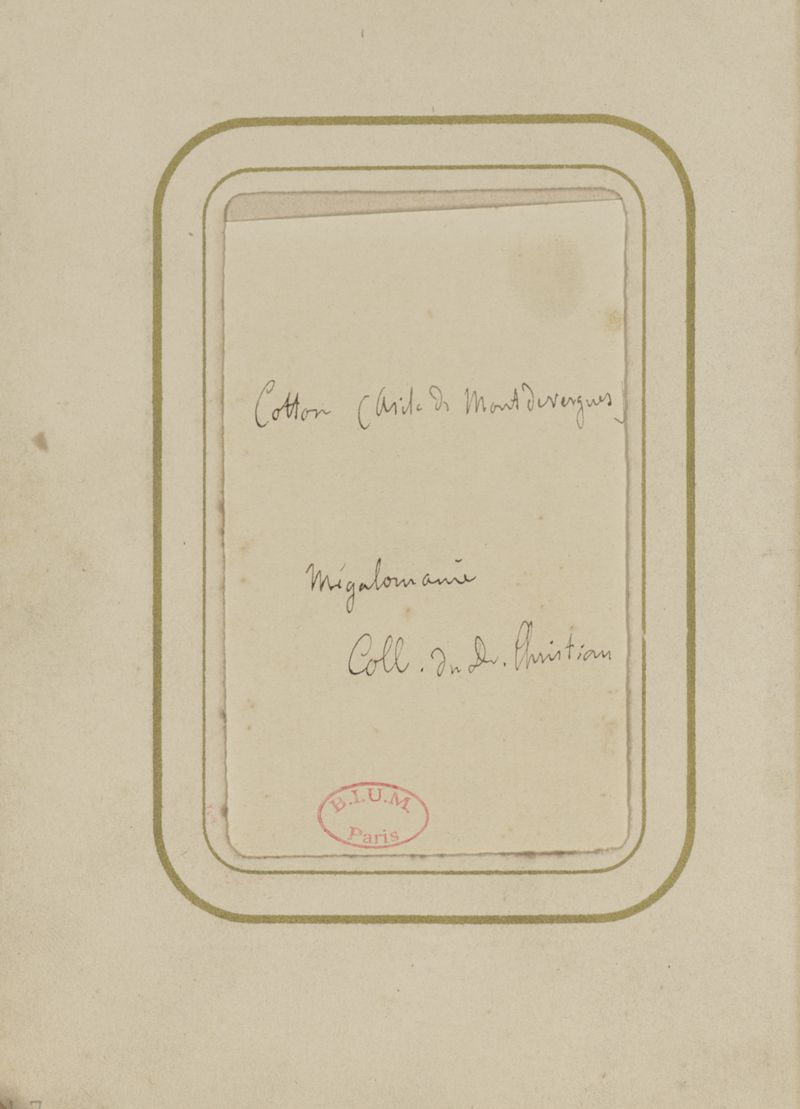 Cotton (Asile de Montdevergues)
Mégalomanie
Coll. du Dr. Christian
B.I.U.M.
Paris